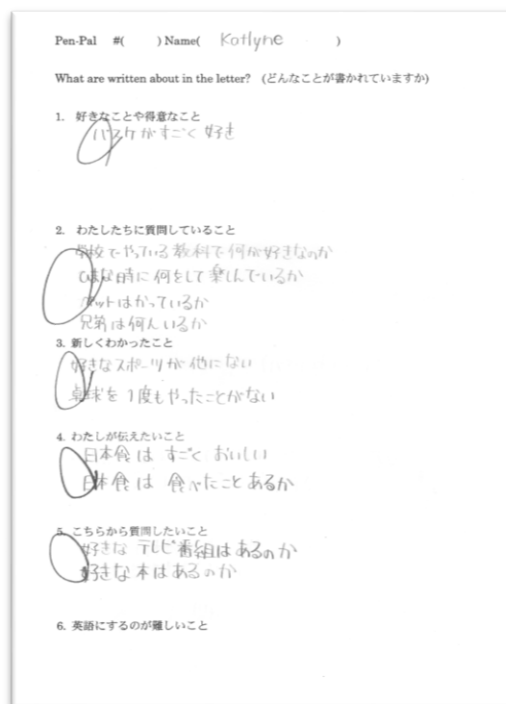 Pen-Pal #( ) Name( Katlyne )
What are written about in the letter? (どんなことが書かれていますか)
1. 好きなことや得意なこと
バスケがすごく好き
2. わたしたちに質問していること
学校でやっている教科で何が好きなのか
ひまな時に何をして楽しんでいるか
ペットはかっているか
兄弟は何人いるか
3. 新しくわかったこと
好きなスポーツが他にない
卓球を1度もやったことがない
4. わたしが伝えたいこと
日本食は すごく おいしい
日本食は 食べたことあるか
5. こちらから質問したいこと
好きな テレビ番組はあるのか
好きな本はあるのか
6. 英語にするのが難しいこと